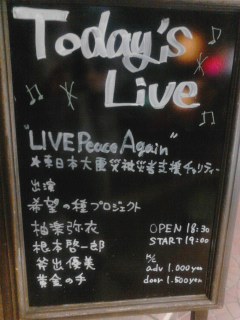 Today's
Live
"LIVE Peace Again"
☆東日本大震災被災者支援チャリティー
出演
希望の種プロジェクト
柚楽弥衣
根本啓一郎
斧出優美
黄金の手
OPEN 18:30
START 19:00
adv 1.000yen
door 1.500yen